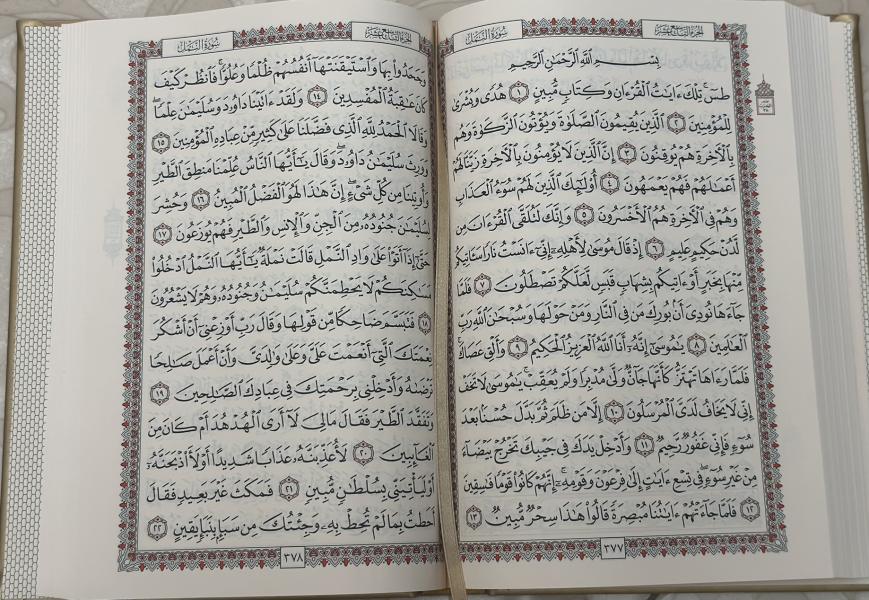 سُورَةُ النَّمْلِ
الجُزْءُ التَّاسِعَ عَشَرَ
بِسْمِ اللَّهِ الرَّحْمَٰنِ الرَّحِيمِ
طسٓ ۚ تِلْكَ ءَايَٰتُ ٱلْقُرْءَانِ وَكِتَابٍ مُّبِينٍ ١ هُدًى وَبُشْرَىٰ
لِلْمُؤْمِنِينَ ٢ ٱلَّذِينَ يُقِيمُونَ ٱلصَّلَوٰةَ وَيُؤْتُونَ ٱلزَّكَوٰةَ وَهُم
بِٱلْءَاخِرَةِ هُمْ يُوقِنُونَ ٣ إِنَّ ٱلَّذِينَ لَا يُؤْمِنُونَ بِٱلْءَاخِرَةِ زَيَّنَّا لَهُمْ
أَعْمَٰلَهُمْ فَهُمْ يَعْمَهُونَ ٤ أُو۟لَٰٓئِكَ ٱلَّذِينَ لَهُمْ سُوٓءُ ٱلْعَذَابِ
وَهُمْ فِى ٱلْءَاخِرَةِ هُمُ ٱلْأَخْسَرُونَ ٥ وَإِنَّكَ لَتُلَقَّى ٱلْقُرْءَانَ مِن
لَّدُنْ حَكِيمٍ عَلِيمٍ ٦ إِذْ قَالَ مُوسَىٰ لِأَهْلِهِۦٓ إِنِّىٓ ءَانَسْتُ نَارًا سَـَٔاتِيكُم
مِّنْهَا بِخَبَرٍ أَوْ ءَاتِيكُم بِشِهَابٍ قَبَسٍ لَّعَلَّكُمْ تَصْطَلُونَ ٧ فَلَمَّا
جَآءَهَا نُودِىَ أَنۢ بُورِكَ مَن فِى ٱلنَّارِ وَمَنْ حَوْلَهَا وَسُبْحَٰنَ ٱللَّهِ رَبِّ
ٱلْعَٰلَمِينَ ٨ يَٰمُوسَىٰٓ إِنَّهُۥٓ أَنَا ٱللَّهُ ٱلْعَزِيزُ ٱلْحَكِيمُ ٩ وَأَلْقِ عَصَاكَ ۚ
فَلَمَّا رَءَاهَا تَهْتَزُّ كَأَنَّهَا جَآنٌّ وَلَّىٰ مُدْبِرًا وَلَمْ يُعَقِّبْ ۚ يَٰمُوسَىٰ لَا تَخَفْ
إِنِّى لَا يَخَافُ لَدَىَّ ٱلْمُرْسَلُونَ ١٠ إِلَّا مَن ظَلَمَ ثُمَّ بَدَّلَ حُسْنًۢا بَعْدَ
سُوٓءٍ فَإِنِّى غَفُورٌ رَّحِيمٌ ١١ وَأَدْخِلْ يَدَكَ فِى جَيْبِكَ تَخْرُجْ بَيْضَآءَ
مِنْ غَيْرِ سُوٓءٍ ۖ فِى تِسْعِ ءَايَٰتٍ إِلَىٰ فِرْعَوْنَ وَقَوْمِهِۦٓ ۚ إِنَّهُمْ كَانُوا۟ قَوْمًا فَٰسِقِينَ
١٢ فَلَمَّا جَآءَتْهُمْ ءَايَٰتُنَا مُبْصِرَةً قَالُوا۟ هَٰذَا سِحْرٌ مُّبِينٌ ١٣
٣٧٧
سُورَةُ النَّمْلِ
الجُزْءُ التَّاسِعَ عَشَرَ
وَجَحَدُوا۟ بِهَا وَٱسْتَيْقَنَتْهَآ أَنفُسُهُمْ ظُلْمًا وَعُلُوًّا ۚ فَٱنظُرْ كَيْفَ
كَانَ عَٰقِبَةُ ٱلْمُفْسِدِينَ ١٤ وَلَقَدْ ءَاتَيْنَا دَاوُۥدَ وَسُلَيْمَٰنَ عِلْمًا ۖ
وَقَالَا ٱلْحَمْدُ لِلَّهِ ٱلَّذِى فَضَّلَنَا عَلَىٰ كَثِيرٍ مِّنْ عِبَادِهِ ٱلْمُؤْمِنِينَ ١٥
وَوَرِثَ سُلَيْمَٰنُ دَاوُۥدَ ۖ وَقَالَ يَٰٓأَيُّهَا ٱلنَّاسُ عُلِّمْنَا مَنطِقَ ٱلطَّيْرِ
وَأُوتِينَا مِن كُلِّ شَىْءٍ ۖ إِنَّ هَٰذَا لَهُوَ ٱلْفَضْلُ ٱلْمُبِينُ ١٦ وَحُشِرَ
لِسُلَيْمَٰنَ جُنُودُهُۥ مِنَ ٱلْجِنِّ وَٱلْإِنسِ وَٱلطَّيْرِ فَهُمْ يُوزَعُونَ ١٧
حَتَّىٰٓ إِذَآ أَتَوْا۟ عَلَىٰ وَادِ ٱلنَّمْلِ قَالَتْ نَمْلَةٌ يَٰٓأَيُّهَا ٱلنَّمْلُ ٱدْخُلُوا۟
مَسَٰكِنَكُمْ لَا يَحْطِمَنَّكُمْ سُلَيْمَٰنُ وَجُنُودُهُۥ وَهُمْ لَا يَشْعُرُونَ
١٨ فَتَبَسَّمَ ضَاحِكًا مِّن قَوْلِهَا وَقَالَ رَبِّ أَوْزِعْنِىٓ أَنْ أَشْكُرَ
نِعْمَتَكَ ٱلَّتِىٓ أَنْعَمْتَ عَلَىَّ وَعَلَىٰ وَٰلِدَىَّ وَأَنْ أَعْمَلَ صَٰلِحًا
تَرْضَىٰهُ وَأَدْخِلْنِى بِرَحْمَتِكَ فِى عِبَادِكَ ٱلصَّٰلِحِينَ ١٩
وَتَفَقَّدَ ٱلطَّيْرَ فَقَالَ مَا لِىَ لَآ أَرَى ٱلْهُدْهُدَ أَمْ كَانَ مِنَ
ٱلْغَآئِبِينَ ٢٠ لَأُعَذِّبَنَّهُۥ عَذَابًا شَدِيدًا أَوْ لَأَا۟ذْبَحَنَّهُۥٓ
أَوْ لَيَأْتِيَنِّى بِسُلْطَٰنٍ مُّبِينٍ ٢١ فَمَكَثَ غَيْرَ بَعِيدٍ فَقَالَ
أَحَطتُ بِمَا لَمْ تُحِطْ بِهِۦ وَجِئْتُكَ مِن سَبَإٍۭ بِنَبَإٍ يَقِينٍ ٢٢
٣٧٨